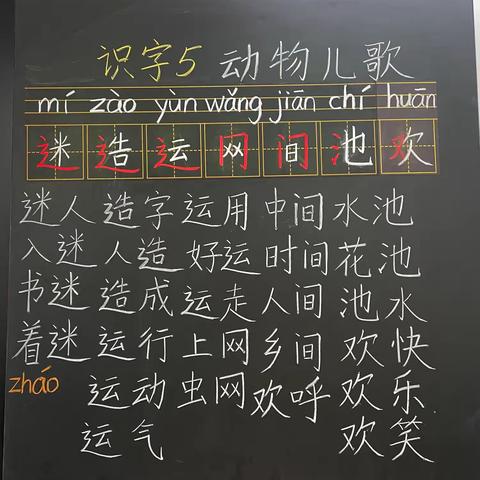 识字5 动物儿歌
mí zào yùn wǎng jiān chí huān
迷 造 运 网 间 池 欢
迷人 造字 运用 中间 水池
入迷 人造 好运 时间 花池
书迷 造成 运走 人间 池水
着迷 运行 上网 乡间 欢快
zháo 运动 虫网 欢呼 欢乐
运气 欢笑